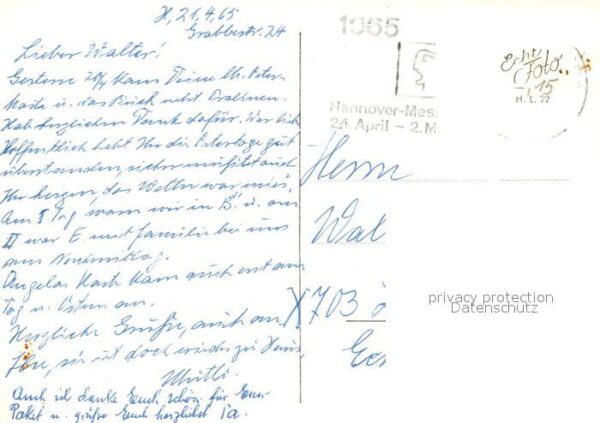 H, 21.4.65
Grabbestr. 24
Lieber Walter!
Gestern 20/4 kam Deine
Karte u. das Buch nebst Pralinen.
Hab herzlichen Dank dafür. War lieb
Hoffentlich habt Ihr die Ostertage gut
überstanden, sicher auch
Ihr das Wetter war mies.
Am I Tag waren wir in B. u. am
II war E. mit Familie bei uns
am Nachmittag.
Angelas Karte kam auch erst am
Tag n. Ostern an.
Herzliche Grüße, auch an
sie ist doch wieder zu Haus
Mutti.
Auch ich danke Euch schön für Euer
Paket u. grüße Euch herzlichst
1965
Echt
Foto
15
H. L. 22
Hannover-Mes
24. April – 2. M
Herrn
Wal
X 703
privacy protection
Datenschutz